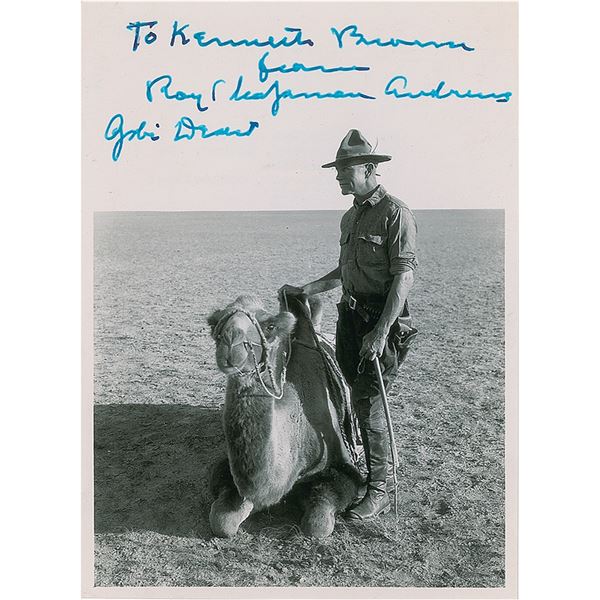 To Kenneth Brown
from
Roy Chapman Andrews
Gobi Desert